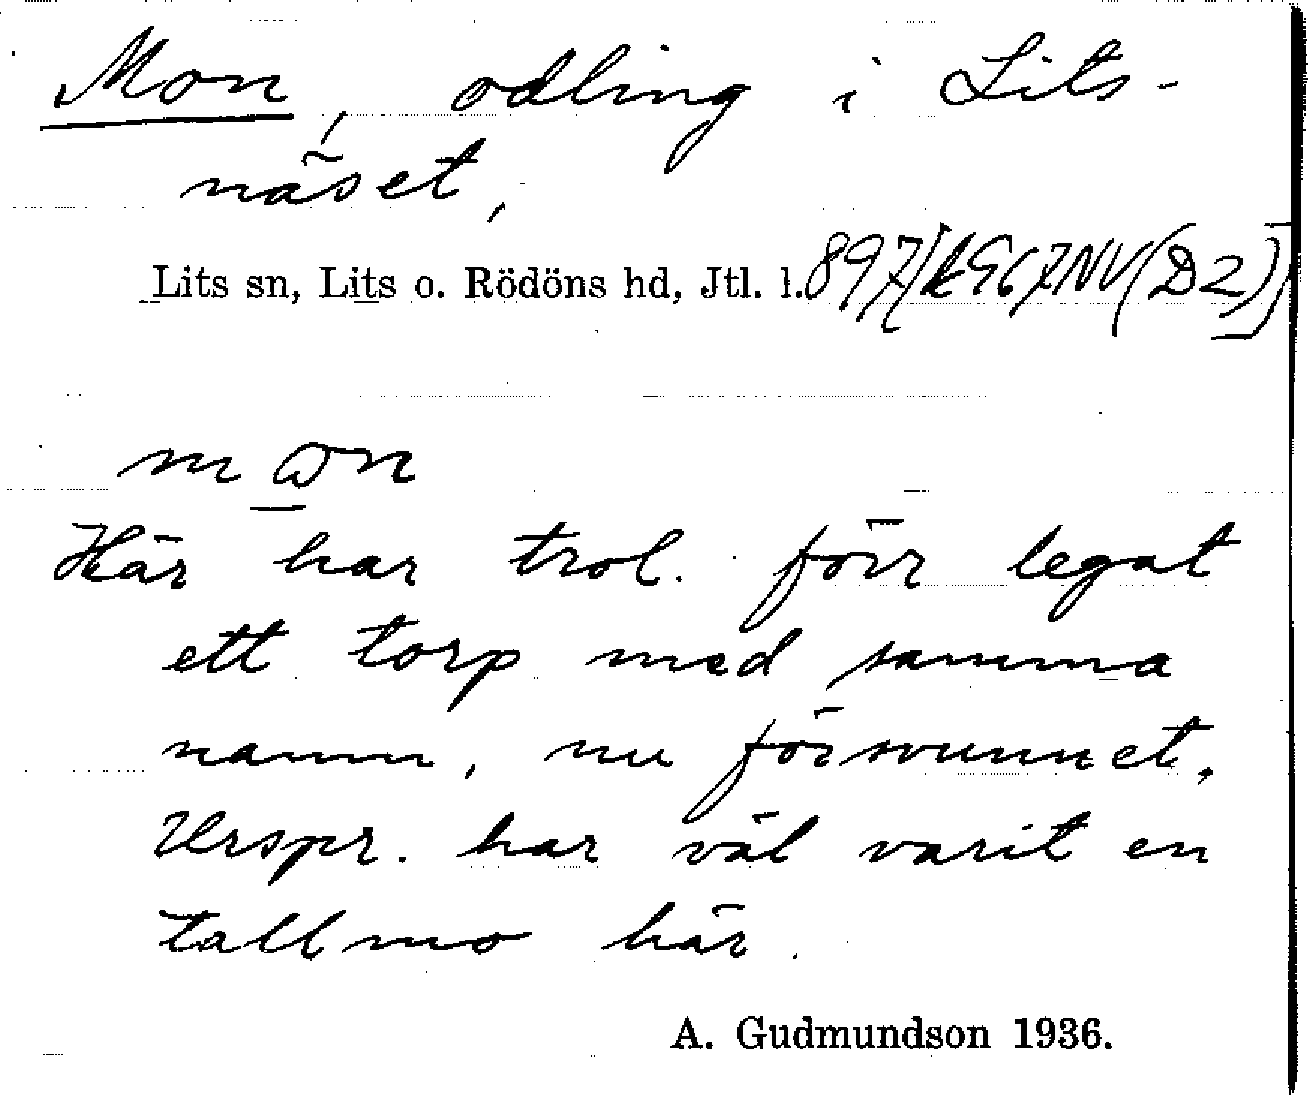 Mon, odling i Lits-
näset,
Lits sn, Lits o. Rödöns hd, Jtl. l.
Här har trol. förr legat
ett torp med samma
namn, nu försvunnet.
Urspr. har väl varit en
tallmo här.
A. Gudmundson 1936.